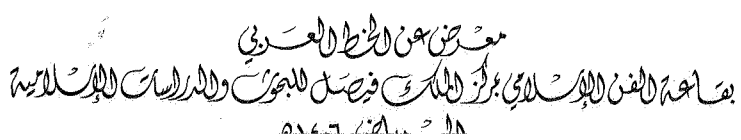 معرض عن الخط العربي
بقاعة الفن الإسلامي بمركز الملك فيصل للبحوث والدراسات الإسلامية
الرياض ١٤٠٦هـ